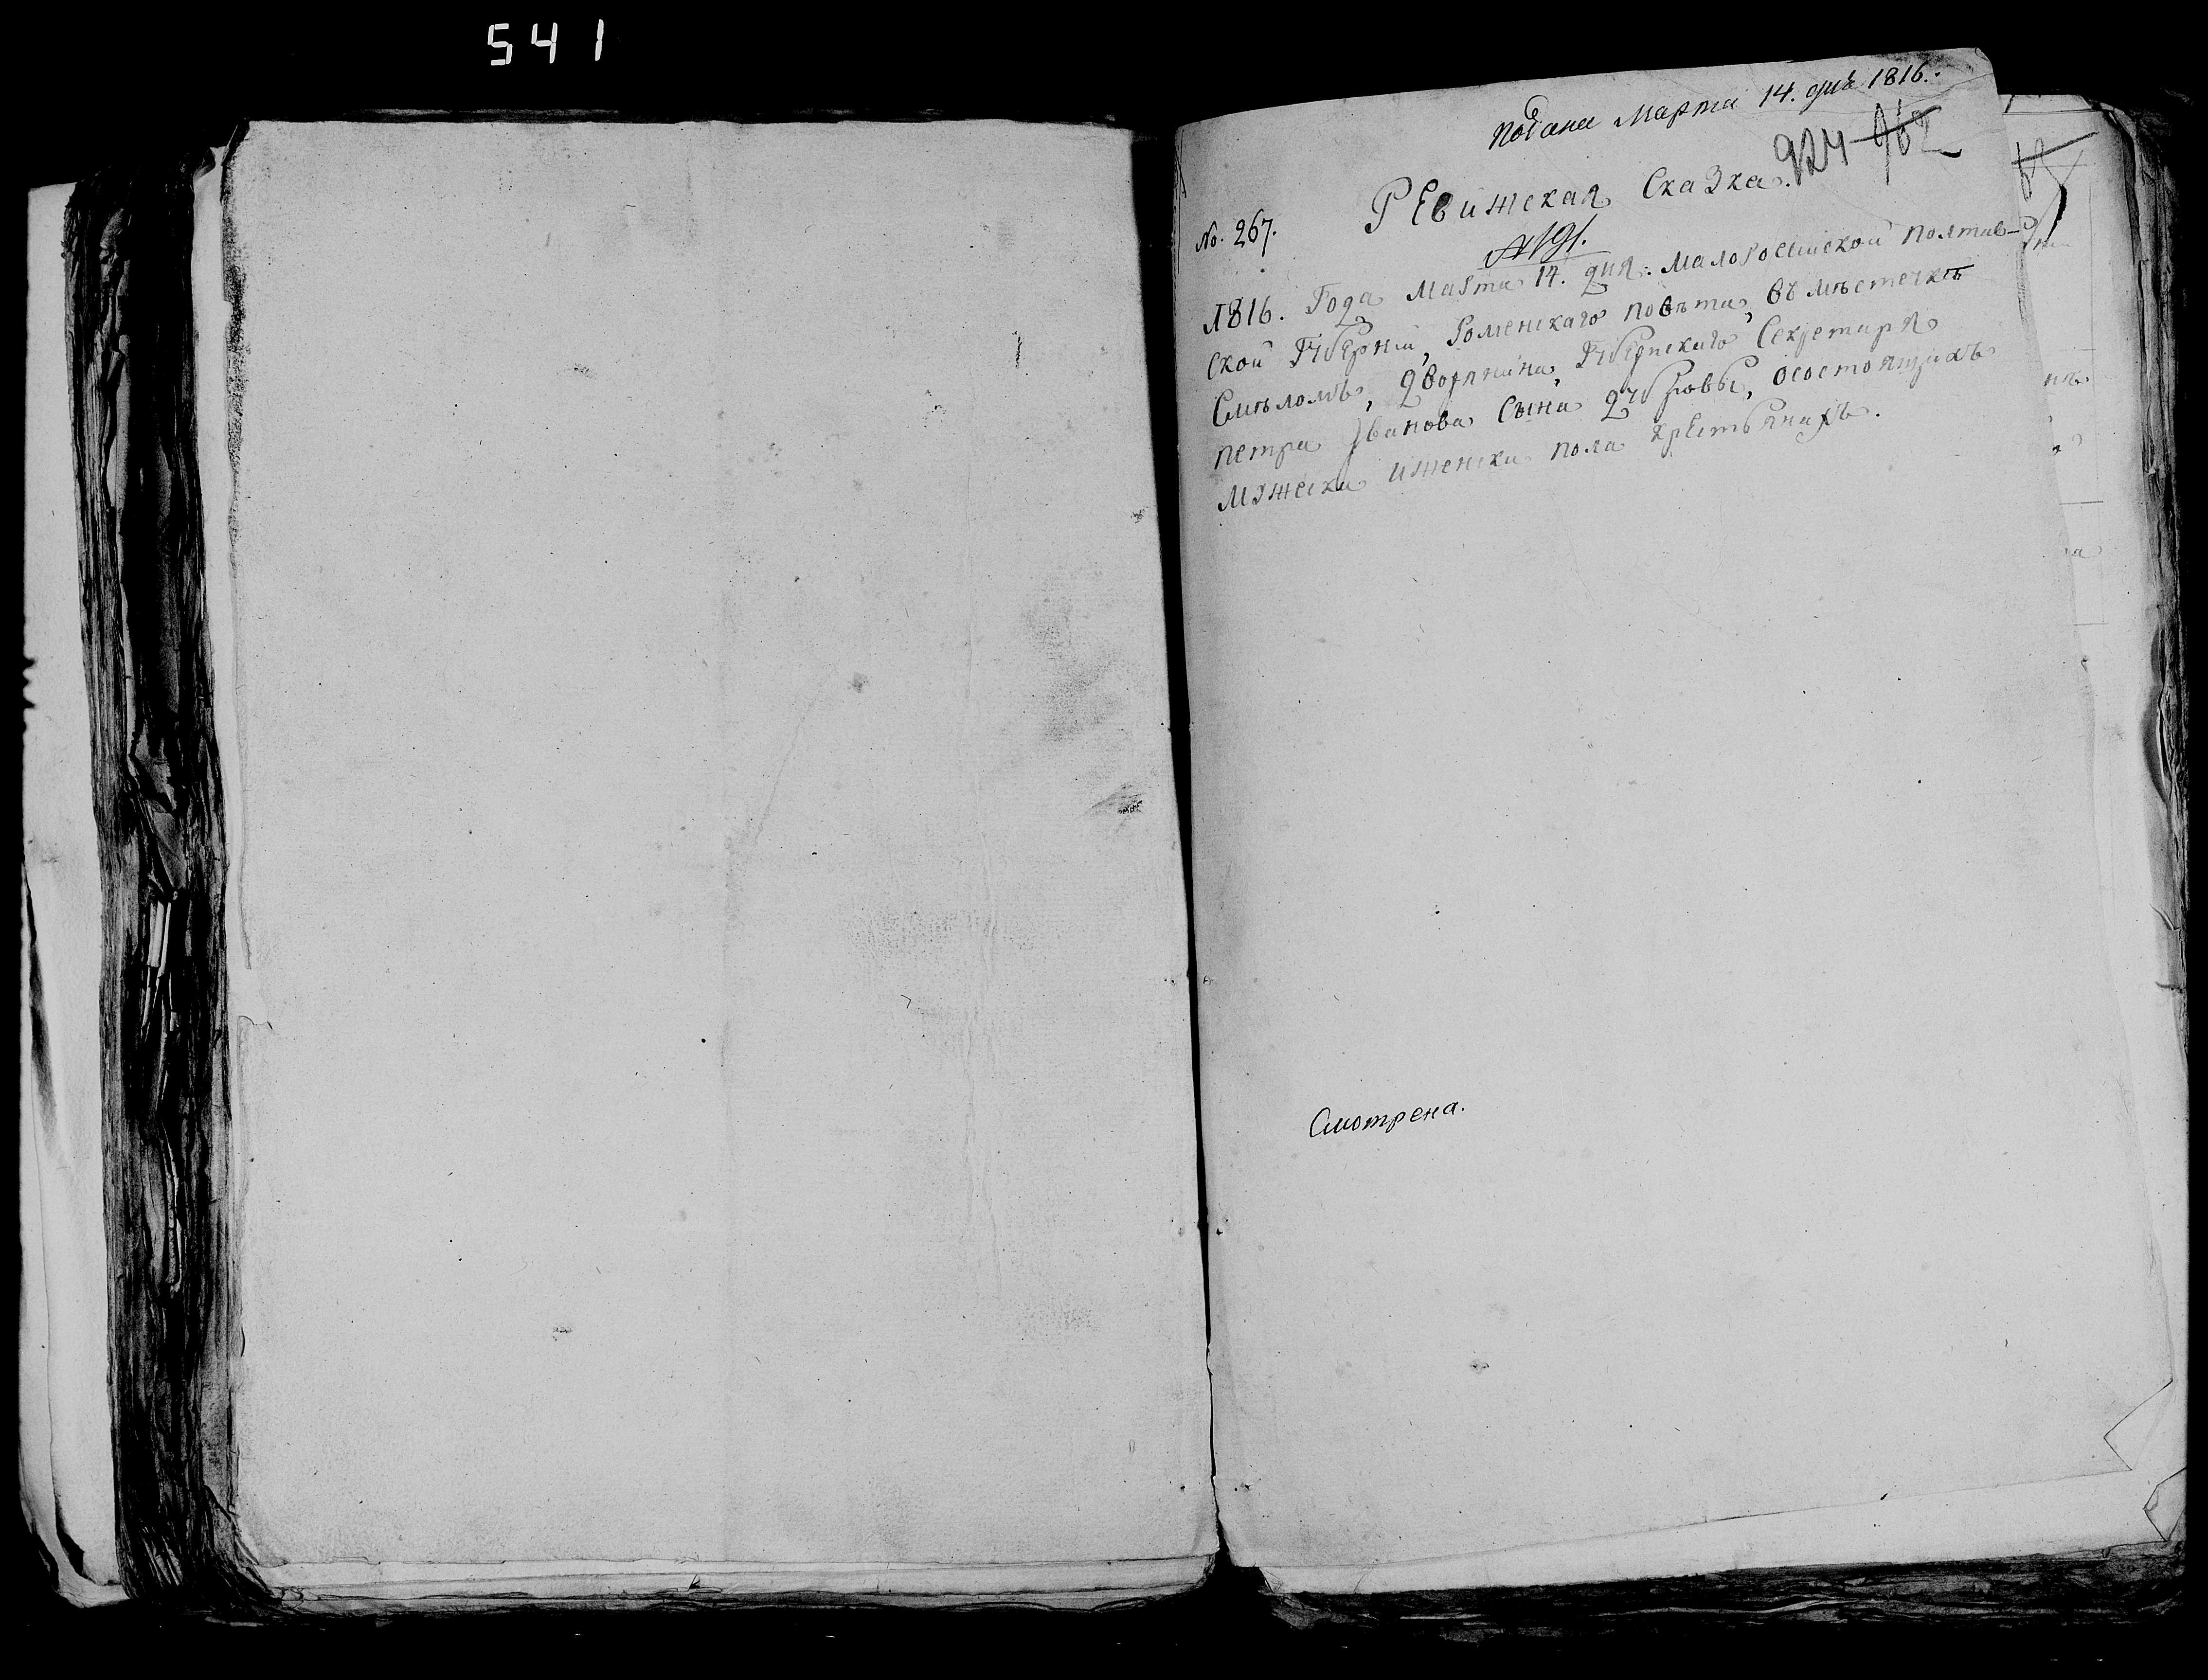 541
подана Марта 14. дня 1816.
924 962
No. 267.
Ревижская Сказка.
1816. Года Марта 14. дня. Малоросийской Полтав-
ской Губерніи, Роменскаго повѣта, въ мѣстечкѣ
Смѣломъ, Дворянина, Губернскаго Секретаря
петра Иванова Сына осостоящихъ
мужеска иженска пола крестьянахъ.
Смотрена.